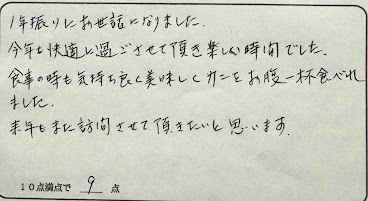 1年振りにお世話になりました.
今年も快適に過ごさせて頂き楽しい時間でした.
食事の時も気持ち良く美味しくカニをお腹一杯食べれ
ました.
来年もまた訪問させて頂きたいと思います.
10点満点で 9 点